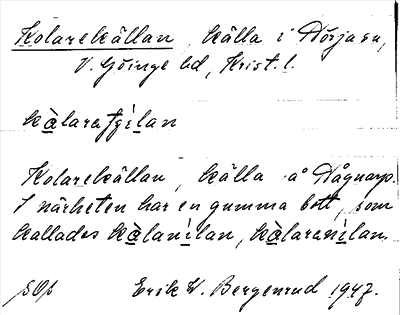 Kolarekällan, källa i Nörjasn,
V. Göinge hd, Krist. l.
Kolarekällan, källa å Hågnarp.
I närheten har en gumma bott, som
kallades kålanilan, kålaranilan.
Erik W. Bergenrud 1947.